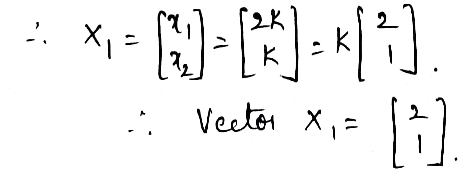 ∴ X₁ = [x₁ x₂] = [2K K] = K [2 1].
∴ Vector X₁ = [2 1].